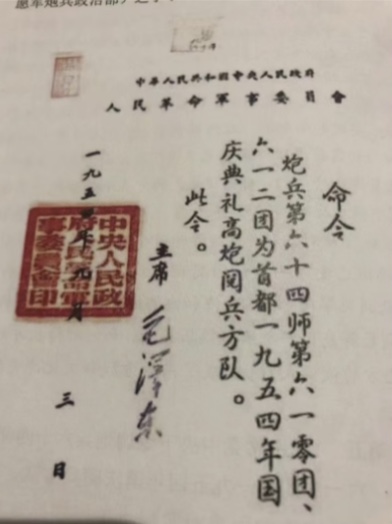 愿军炮兵政治部
中华人民共和国中央人民政府
人民革命军事委员會
命令
炮兵第六十四师第六一零团、
六一二团为首都一九五四年国
庆典礼高炮阅兵方队。
此令。
主席 毛泽东
一九五四年九月三日
中央人民政
府人民革命军
事委员会印